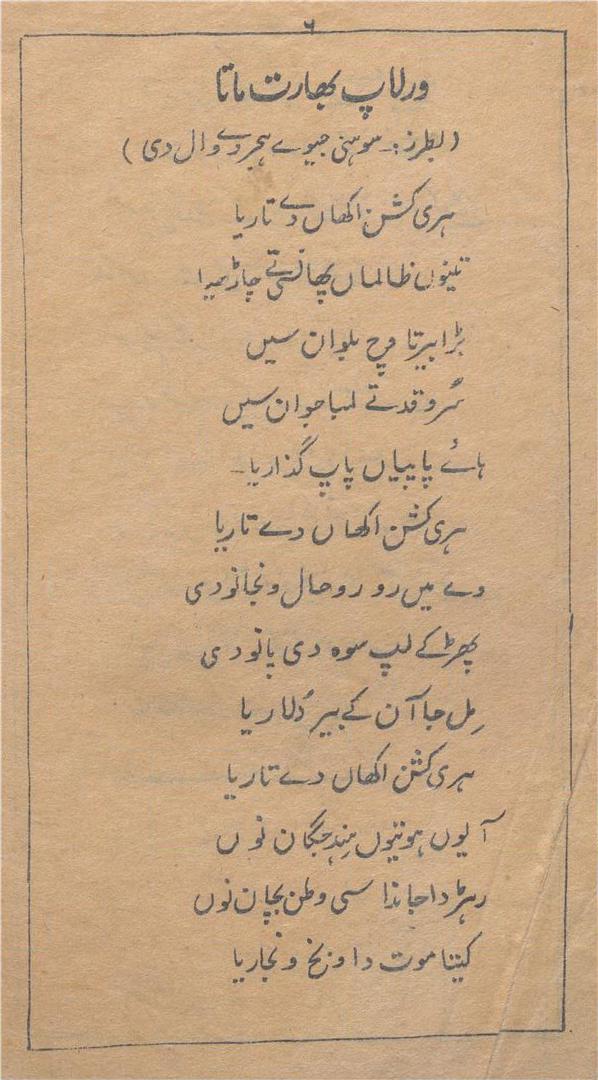 ۶
ورلاپ بھارت ماتا
(بطرز:۔ سوہنی جیوے ہجر دے وال دی)
ہری کشن اکھاں دے تاریا
تینوں ظالماں پھانسی تے چاڑھیا
بڑا بیرتا وچ بلوان سیں
سُرو قدتے لمبا جوان سیں
ہائے پاپیاں پاپ گذاریا۔
ہری کشن اکھاں دے تاریا
وے میں رو رو حال ونجانودی
پھڑکے لپ سوہ دی پانودی
مِل جا آن کے بیر دُلاریا
ہری کشن اکھاں دے تاریا
آیوں ہوتیوں ہند جگان نوں
رہڑدا جاندا سی وطن بچان نوں
کیتا موت دا ونج ونجاریا